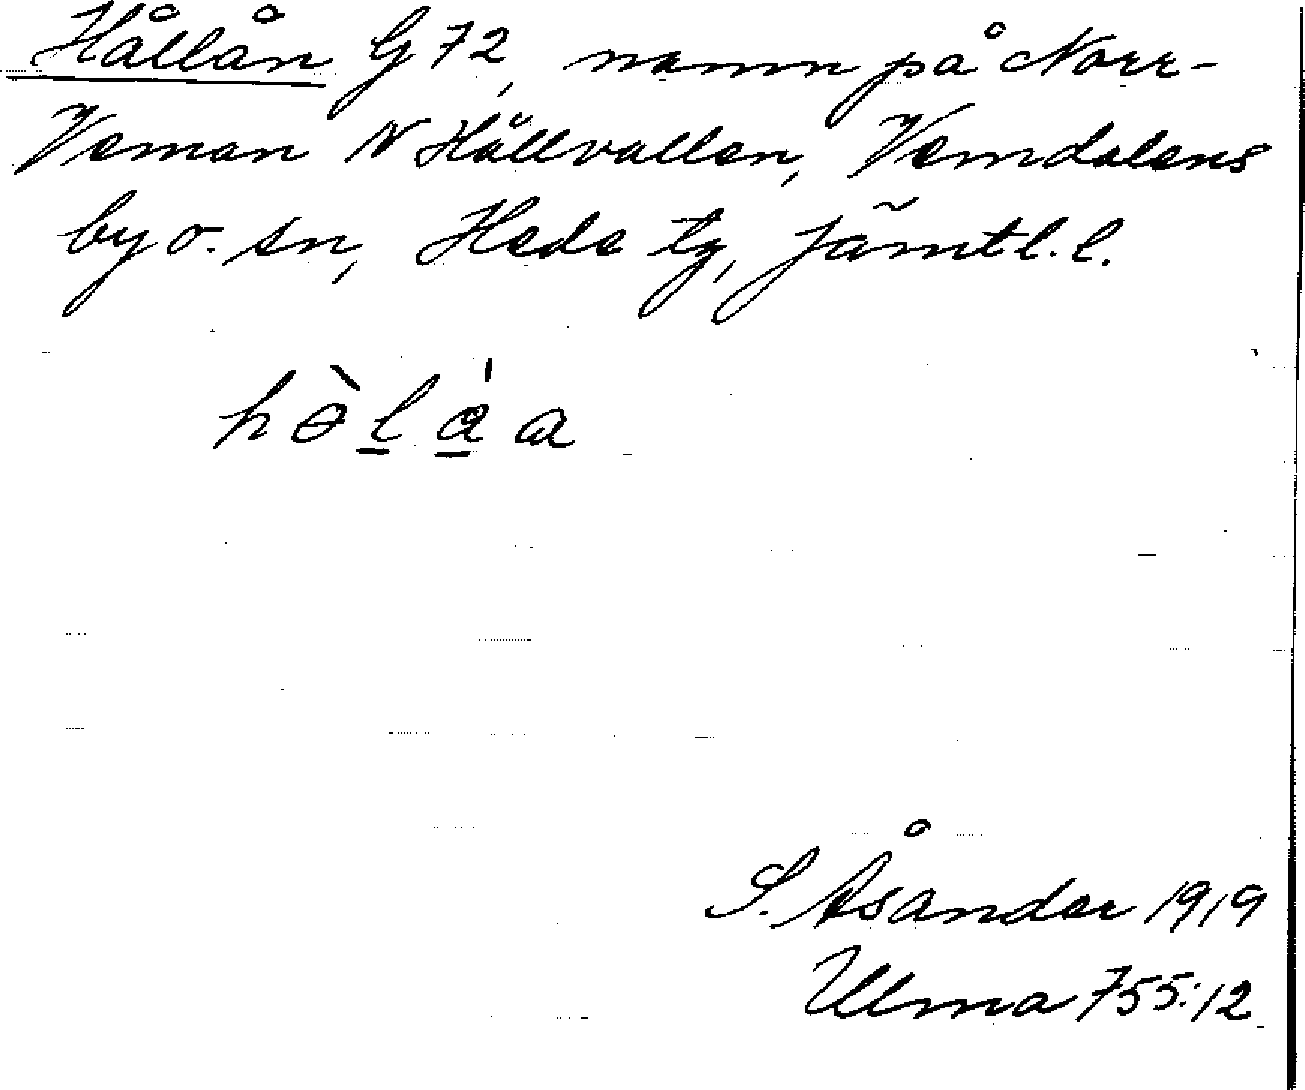 Hållån G 72, namn på Norr-
Veman N Hållvallen, Vemdalens
by o. sn, Hede tg, Jämtl. l.
hòlåa
S. Åsander 1919
Ulma 755:12